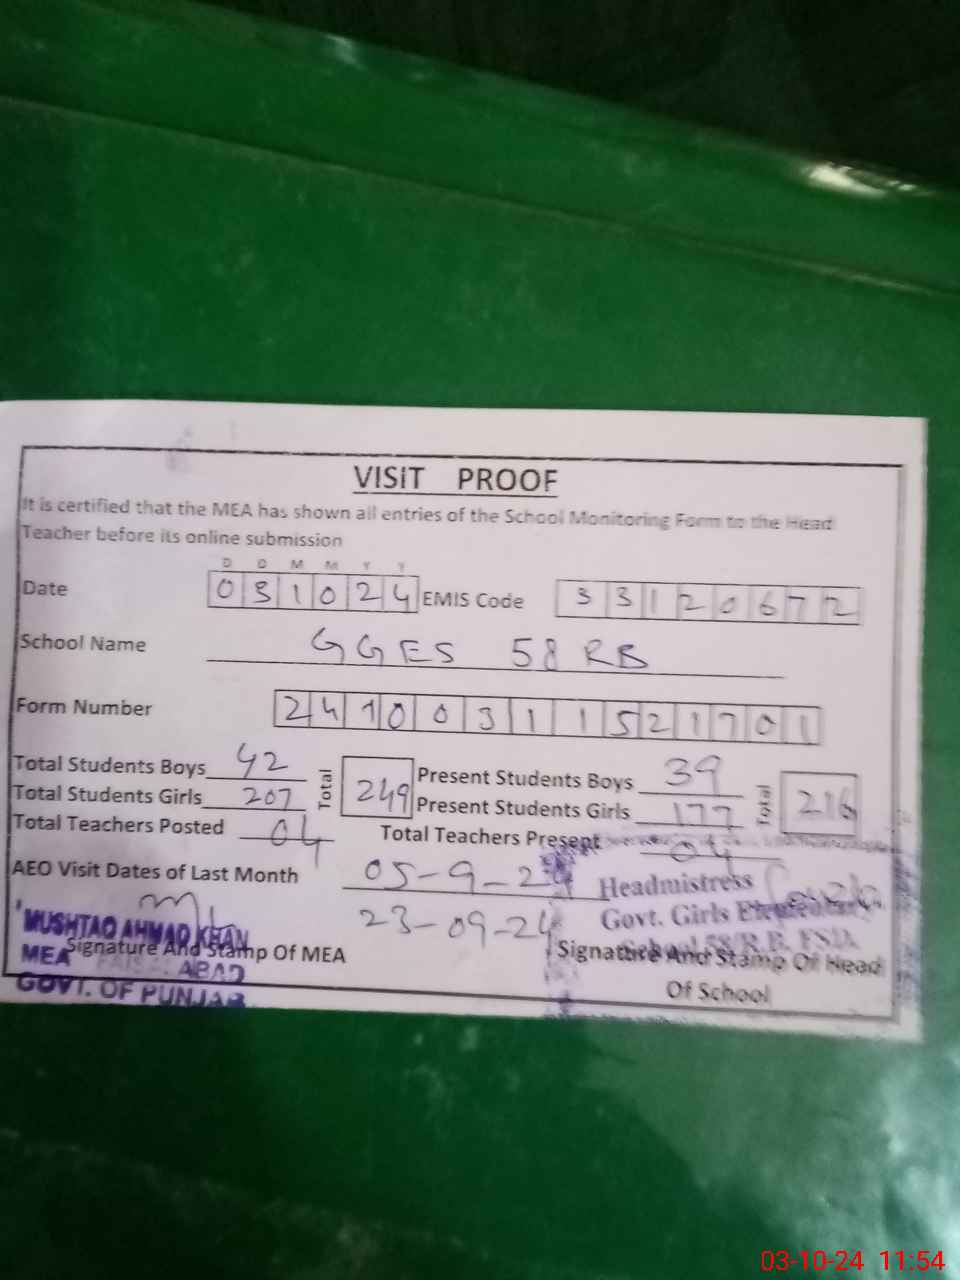 VISIT PROOF
It is certified that the MEA has shown all entries of the School Monitoring Form to the Head
Teacher before its online submission
D D M M Y Y
Date 031024 EMIS Code 33120672
School Name GGES 58 RB
Form Number 24100311521701
Total Students Boys 42 Total 249 Present Students Boys 39 Total 216
Total Students Girls 207 Present Students Girls 177
Total Teachers Posted 04 Total Teachers Present 04
AEO Visit Dates of Last Month 05-9-24
23-09-24
MUSHTAQ AHMAD KHAN
MEA FAISALABAD
GOVT. OF PUNJAB
Signature And Stamp Of MEA
Headmistress
Govt. Girls Elementary
School 58/R.B. FSD.
Signature And Stamp Of Head
Of School
03-10-24 11:54